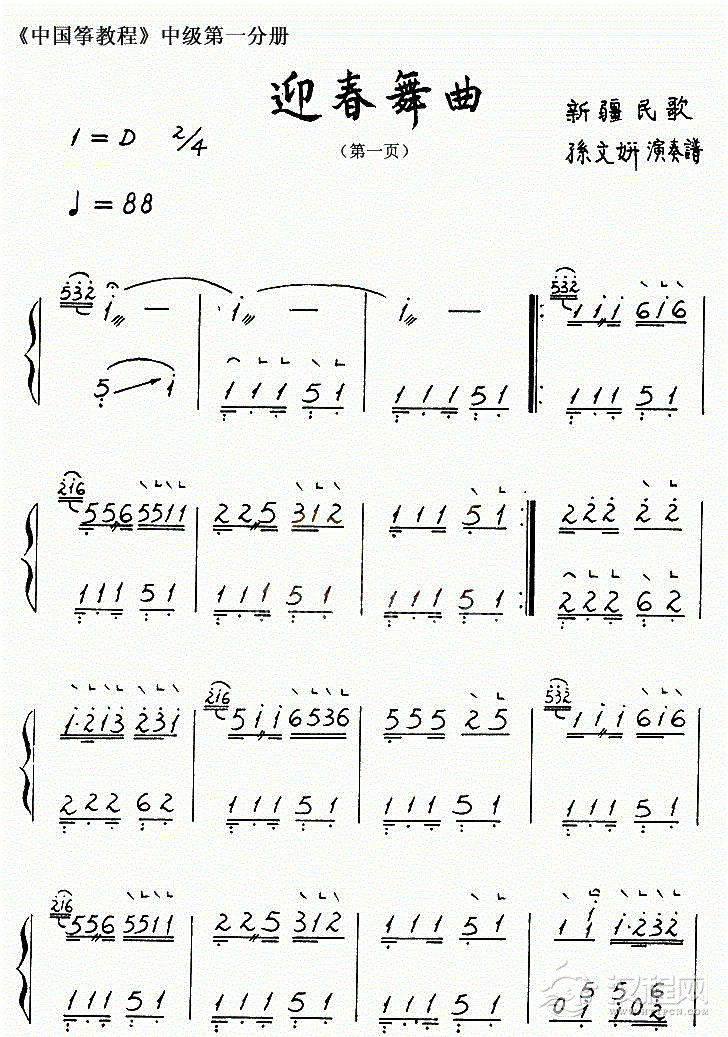 《中国筝教程》中级第一分册
迎春舞曲
新疆民歌
1=D 2/4
（第一页）
孫文妍演奏譜
♩=88
532 i — i — i — 532 1 1 i 6 i 6
5 i 1 1 1 5 1 1 1 1 5 1 1 1 1 5 1
216 5 5 6 5 5 1 1 2 2 5 3 1 2 1 1 1 5 1 2 2 2 2 2
1 1 1 5 1 1 1 1 5 1 1 1 1 5 1 2 2 2 6 2
i·2 i 3 2 3 i 216 5 i i 6 5 3 6 5 5 5 2 5 532 1 i i 6 i 6
2 2 2 6 2 1 1 1 5 1 1 1 1 5 1 1 1 1 5 1
216 5 5 6 5 5 1 1 2 2 5 3 1 2 1 1 1 5 1 1 1 i i·2 3 2
1 1 1 5 1 1 1 1 5 1 1 1 1 5 1 0 5 1 5 1 0 6 2
汉程网